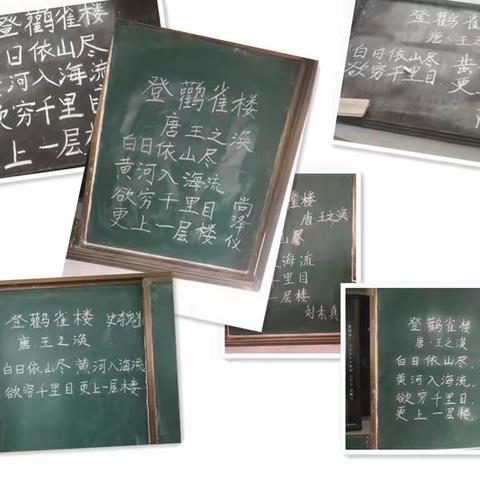 登鹳雀楼
日依山尽
河入海流
穷千里目
上一层楼
登鹳雀楼
唐 王之涣
白日依山尽
黄河入海流
欲穷千里目
更上一层楼
尚泽仪
登鹳雀
唐·王之
白日依山尽 黄
欲穷千里目 更
雀楼
唐 王之涣
山尽
海流
千里目
一层楼
刘素真
登鹳雀楼
唐 王之涣
白日依山尽 黄河入海流
欲穷千里目 更上一层楼
登鹳雀楼
唐·王之涣
白日依山尽,
黄河入海流。
欲穷千里目,
更上一层楼。